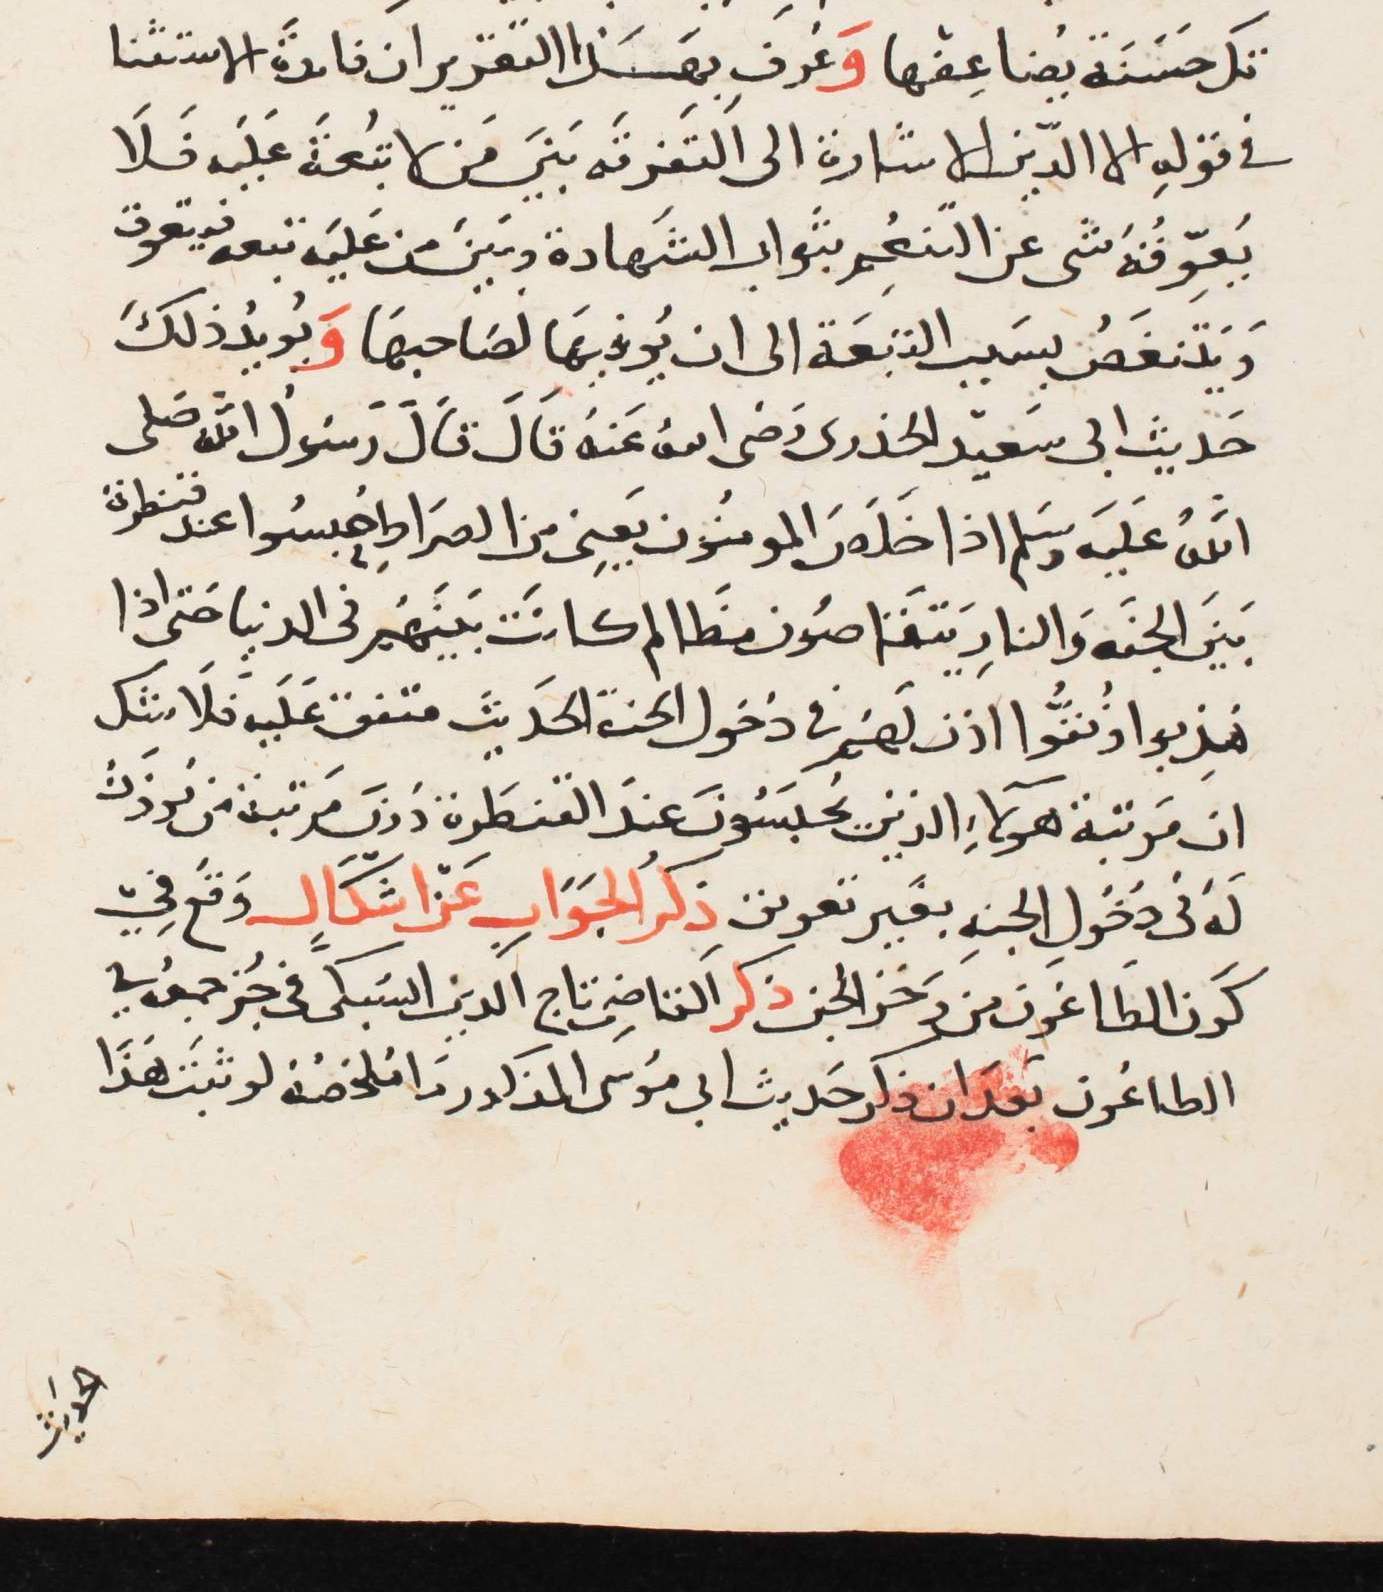 تكل حَسَنَة يُضاعِفها وَعُرفَ بِهَذا التقرير ان فايدة الاستثنا
في قولهِ الا الدّين الاشارة الى التَفرقه بَينَ مَن لا تبعَة عَليَه فَلَا
يُعوِّقُهُ شى عن التنعُم بثَواب الشَهادة وبَينَ من عَليَه تبعه فيتعوق
وَيَتنغَصُ بسَبب التبَعَة الى ان يُوفيهَا لصَاحبهَا وَيُويدُ ذلكَ
حَديث ابى سَعيد الخدرى رَضى الله عَنهُ قَالَ قَالَ رَسُولُ اللّه صَلى
اللّهُ عَليَه وسَلم اذا خَلَصَ المومنُون يَعنِى من الصرَاطِ حُبسُوا عند قنطرة
بَينَ الجنَه وَالنارِ يَتقَاصُون مظَالم كانَت بَينَهُم فى الدنيا حَتى اذا
هُذبوا ونُقُّوا اذن لَهُم في دُخول الجنة الحَديث متفق عَليَه فَلَا شك
ان مَرتبة هَولاءِ الذين يُحبَسُونَ عندَ القنطَرة دُونَ مَرتبة من يُوذَنُ
لَهُ فى دُخُول الجنه بغَير تعويق ذِكرُ الجَوَاب عَن اشكَال وَقعَ فِي
كَون الطَاعُون من وَخز الجن ذكر القاضِى تاج الدين السُبكى فى جُزء جمعهُ في
الطاعُون بَعدَ ان ذكر حَديث ابى مُوسى المذكور مَا مُلخصُهُ لو ثبَت هَذَا
حديث